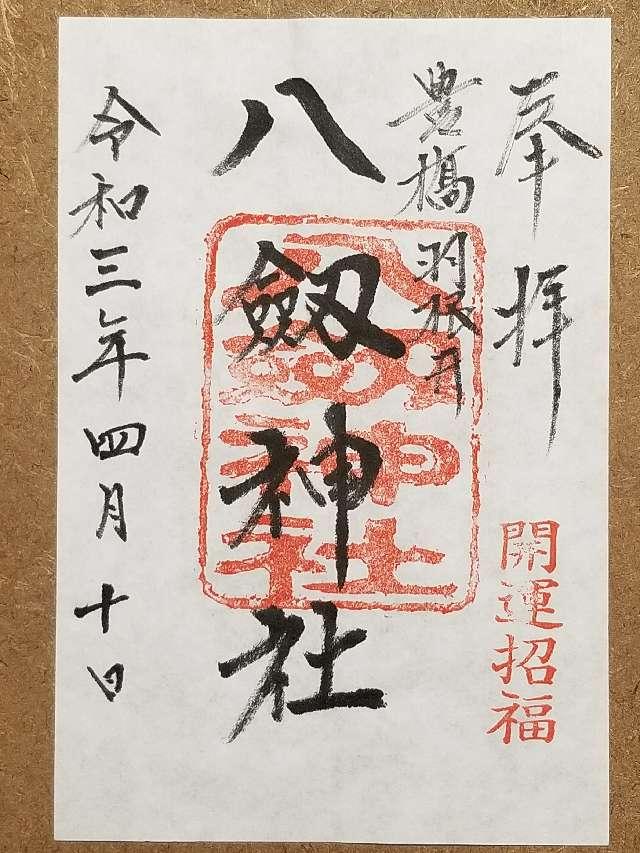 奉拝
開運招福
豊橋羽根井
八劔神社
八剱神社
令和三年四月十日